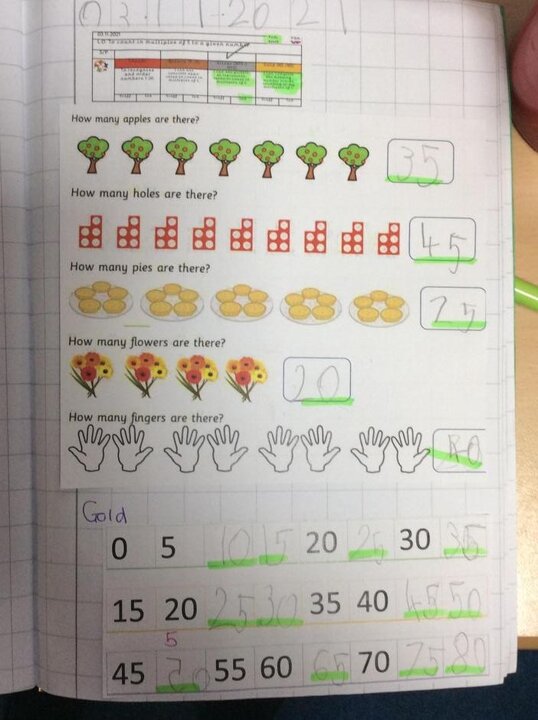 03.11-2021
03.11.2021
L.O: To count in multiples of 5 to a given number
How many apples are there?
35
How many holes are there?
45
How many pies are there?
25
How many flowers are there?
20
How many fingers are there?
Gold
0 5 10 15 20 25 30 35
15 20 25 30 35 40 45 50
5
45 50 55 60 65 70 75 80